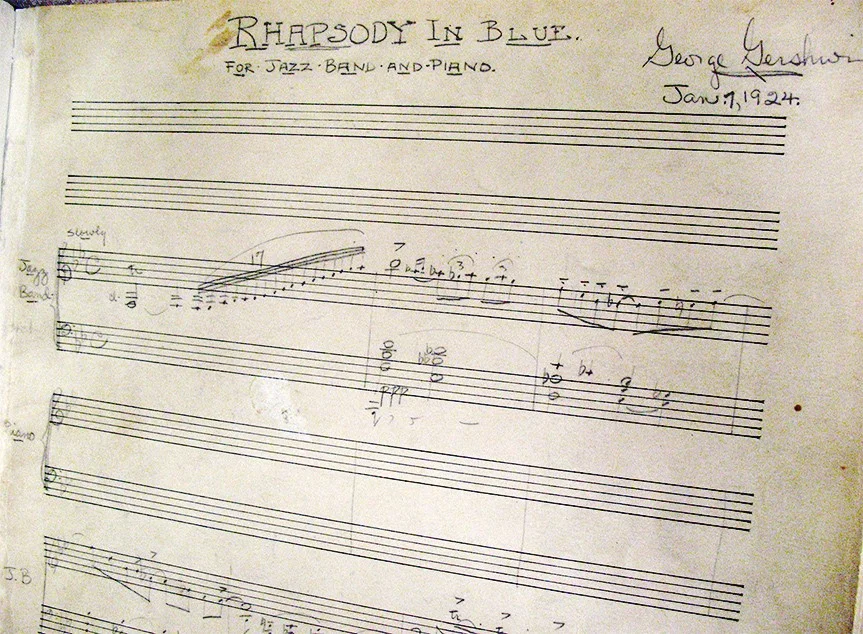 RHAPSODY IN BLUE.
FOR·JAZZ·BAND·AND·PIANO.
George Gershwin
Jan. 7, 1924.
slowly
Jazz
Band
17
3
ppp
Piano
J.B